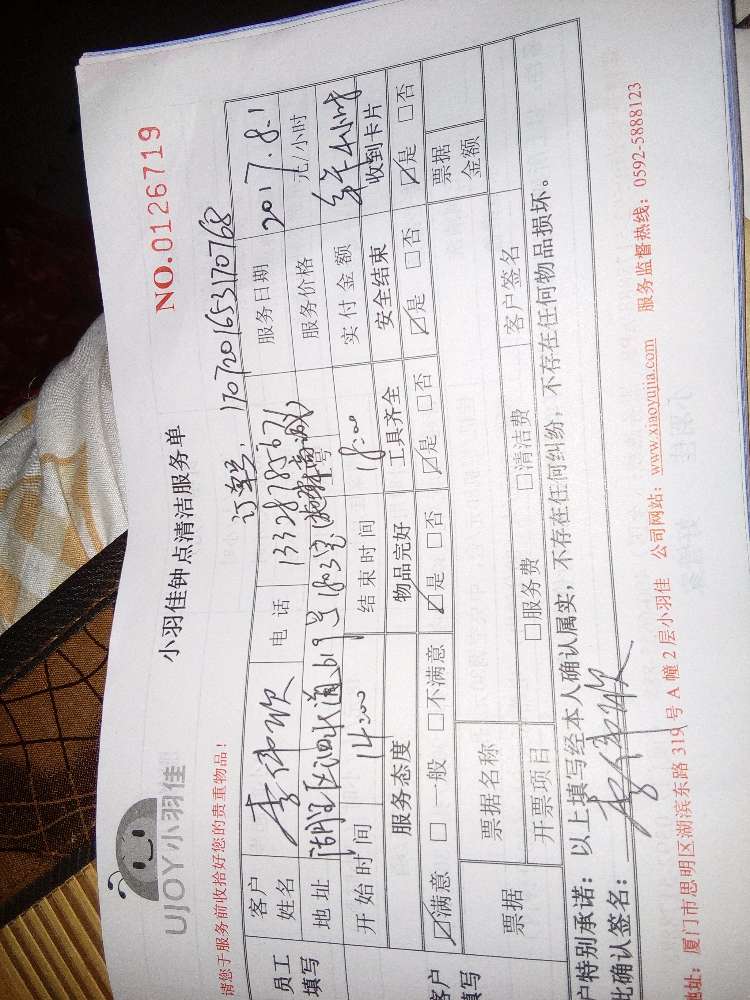 UJOY小羽佳
小羽佳钟点清洁服务单
NO.0126719
请您于服务前收拾好您的贵重物品！
订单号：1707201653170768
员工填写
客户姓名 李伟欣 电话 13328785676 服务日期 2017.8.1
地址 湖里区 619号1803室 服务价格 元/小时
开始时间 14:00 结束时间 18:00 实付金额 4小时
服务态度 物品完好 工具齐全 安全结束 收到卡片
☑满意 □一般 □不满意 ☑是 □否 ☑是 □否 ☑是 □否 ☑是 □否
客户填写
票据 票据名称 票据金额
开票项目 □服务费 □清洁费 客户签名
户特别承诺：以上填写经本人确认属实，不存在任何纠纷，不存在任何物品损坏。
此确认签名：李伟欣
地址：厦门市思明区湖滨东路319号A幢2层小羽佳 公司网站：www.xiaoyujia.com 服务监督热线：0592-5888123